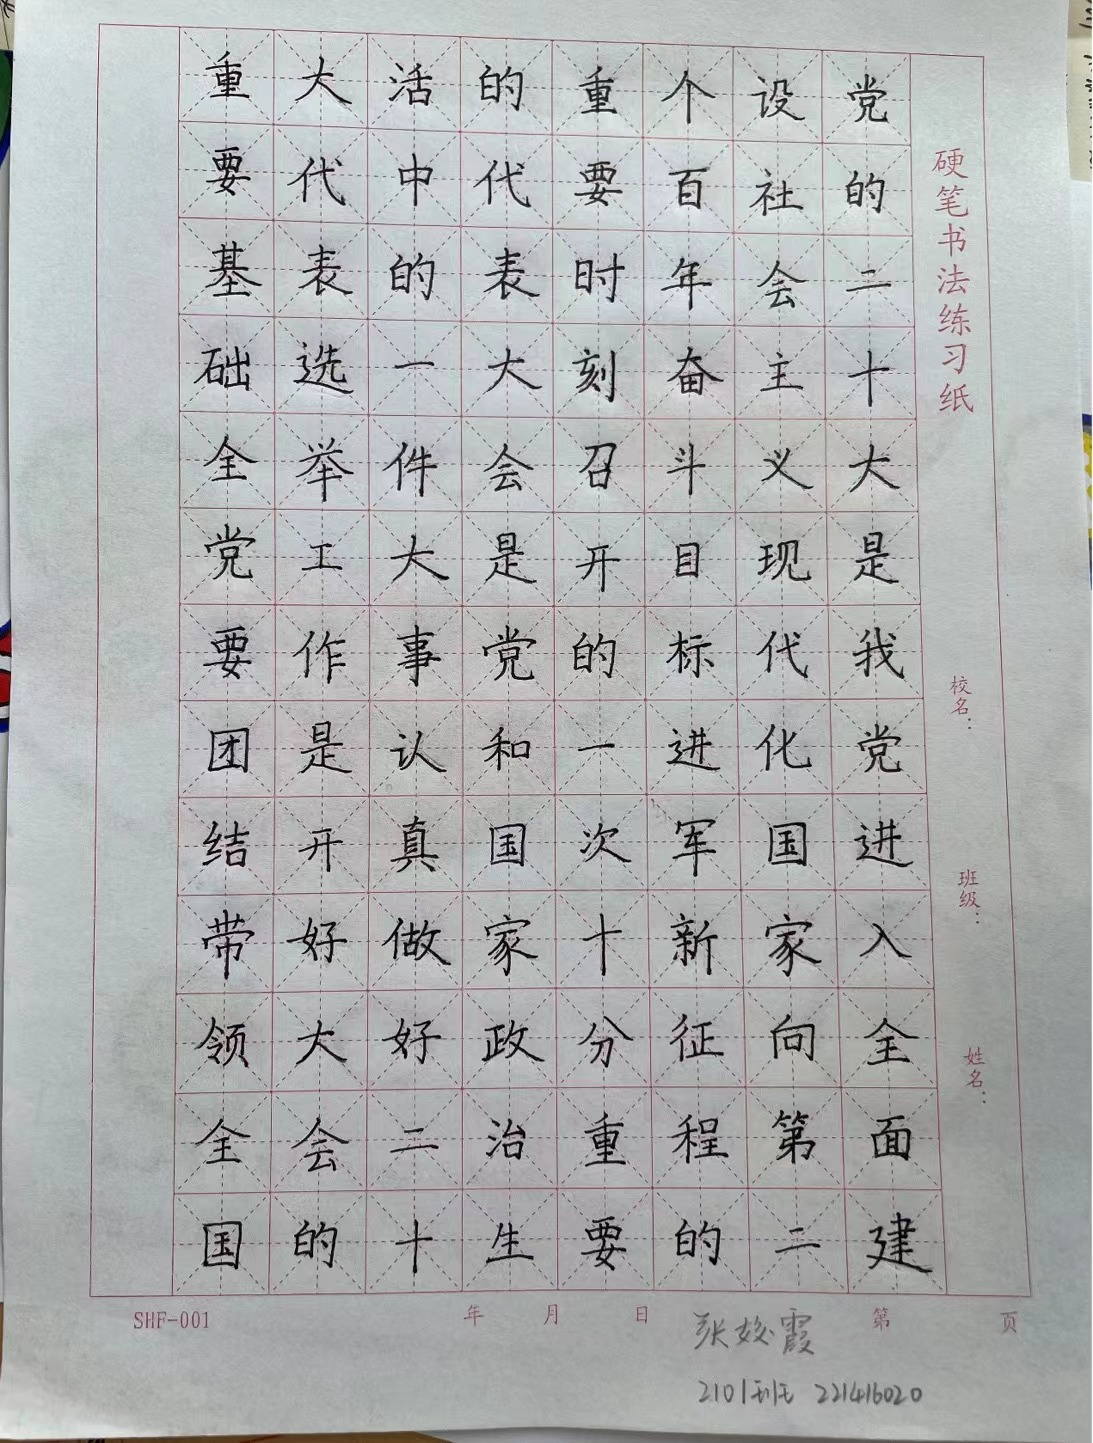 硬笔书法练习纸
校名：
班级：
姓名：
党的二十大是我党进入全面建
设社会主义现代化国家向第二
个百年奋斗目标进军新征程的
重要时刻召开的一次十分重要
的代表大会是党和国家政治生
活中的一件大事认真做好二十
大代表选举工作是开好大会的
重要基础全党要团结带领全国
SHF-001
年 月 日
第 页
张姣霞
2101班 221416020